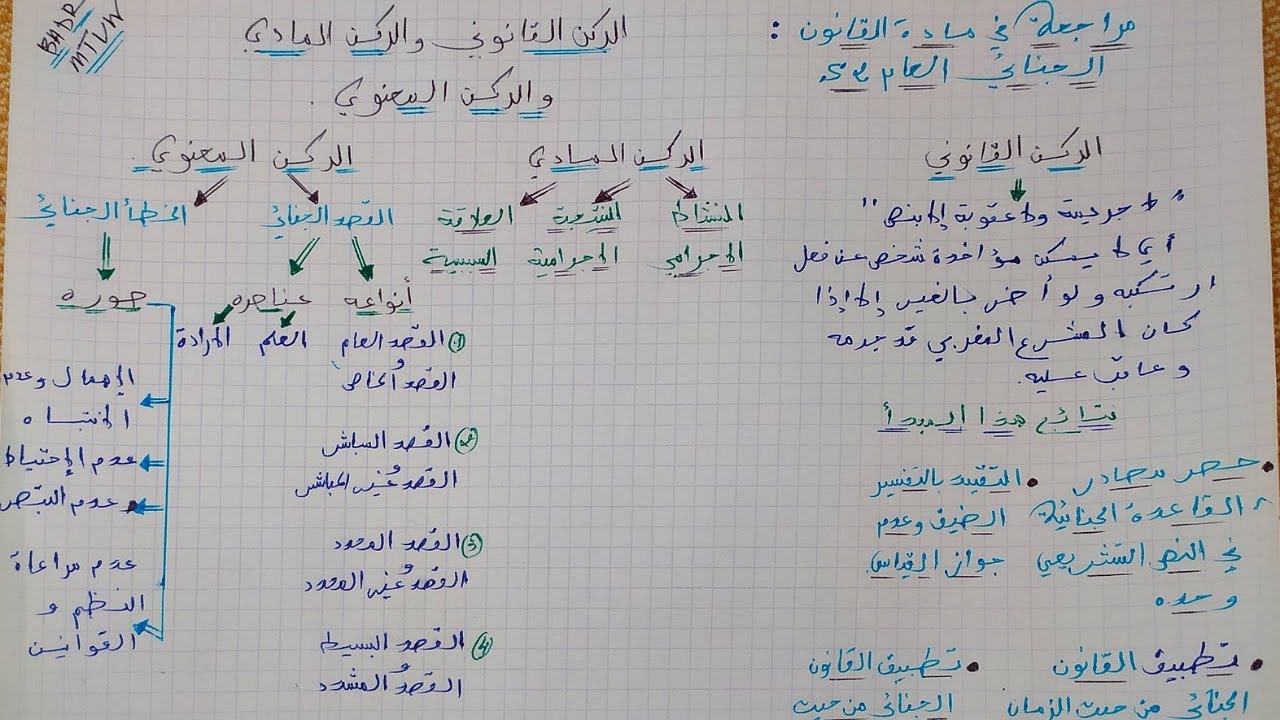 مراجعة في مادة القانون :
الجنائي العام S2.
الركن القانوني والركن المادي
والركن المعنوي.
BADR
MTLW
الركن القانوني
"لا جريمة ولا عقوبة إلا بنص"
أي لا يمكن مؤاخدة شخص عن فعل
ارتكبه ولو أضر بالغير إلا إذا
كان المشرع المغربي قد جرمه
وعاقب عليه.
نتائج هذا المبدأ
• حصر مصادر
القاعدة الجنائية
في النص التشريعي
وحده
• التقيد بالتفسير
الضيق وعدم
جواز القياس.
• تطبيق القانون
الجنائي من حيث الزمان
• تطبيق القانون
الجنائي من حيث
الركن المادي
النشاط
الإجرامي
النتيجة
الإجرامية
العلاقة
السببية
الركن المعنوي.
القصد الجنائي
أنواعه
① القصد العام
و
القصد الخاص
② القصد المباشر
و
القصد غير المباشر
③ القصد المحدود
و
القصد غير المحدود
④ القصد البسيط
و
القصد المشدد
عناصره
العلم
الإرادة
الخطأ الجنائي
صوره
الإهمال وعدم
الانتباه
عدم الإحتياط
عدم التبصر
عدم مراعاة
النظم و
القوانين